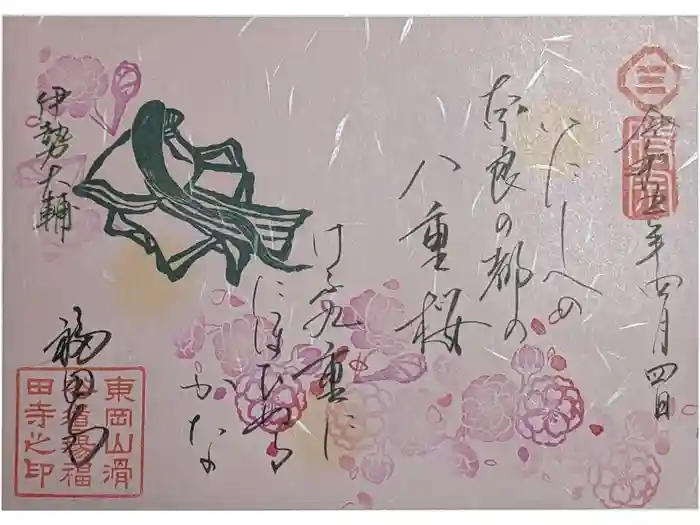 令和五年四月四日
いにしへの
奈良の都の
八重桜
けふ九重に
にほひぬる
かな
伊勢大輔
福田寺
東岡山滑
田寺之印